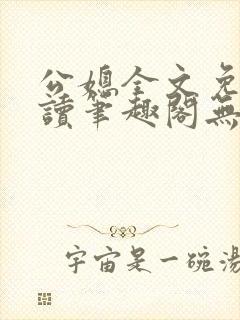 公媳全文免
讀筆趣閣無
宇宙是一碗湯